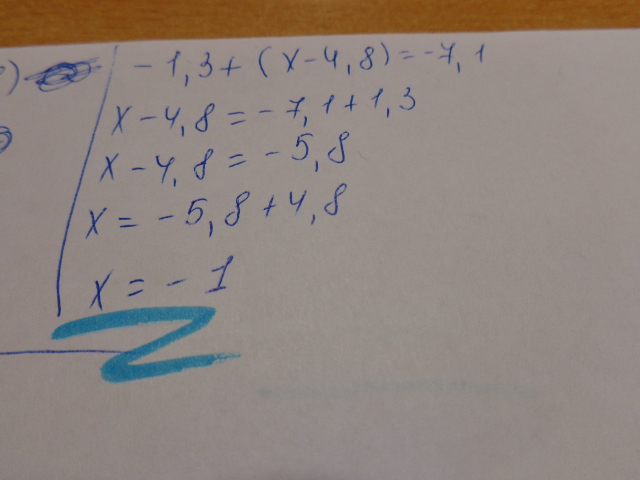 -1,3+(x-4,8)=-7,1
x-4,8=-7,1+1,3
x-4,8=-5,8
x=-5,8+4,8
x=-1